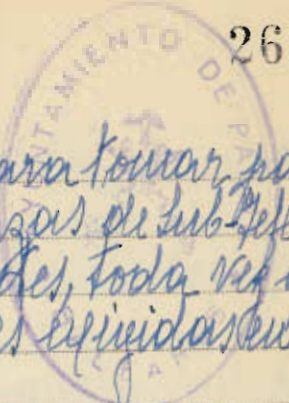 26
NTAMIENTO DE PA
ara tomar pa
zas de Sub-Jef
tes, toda vez
es exigidas en